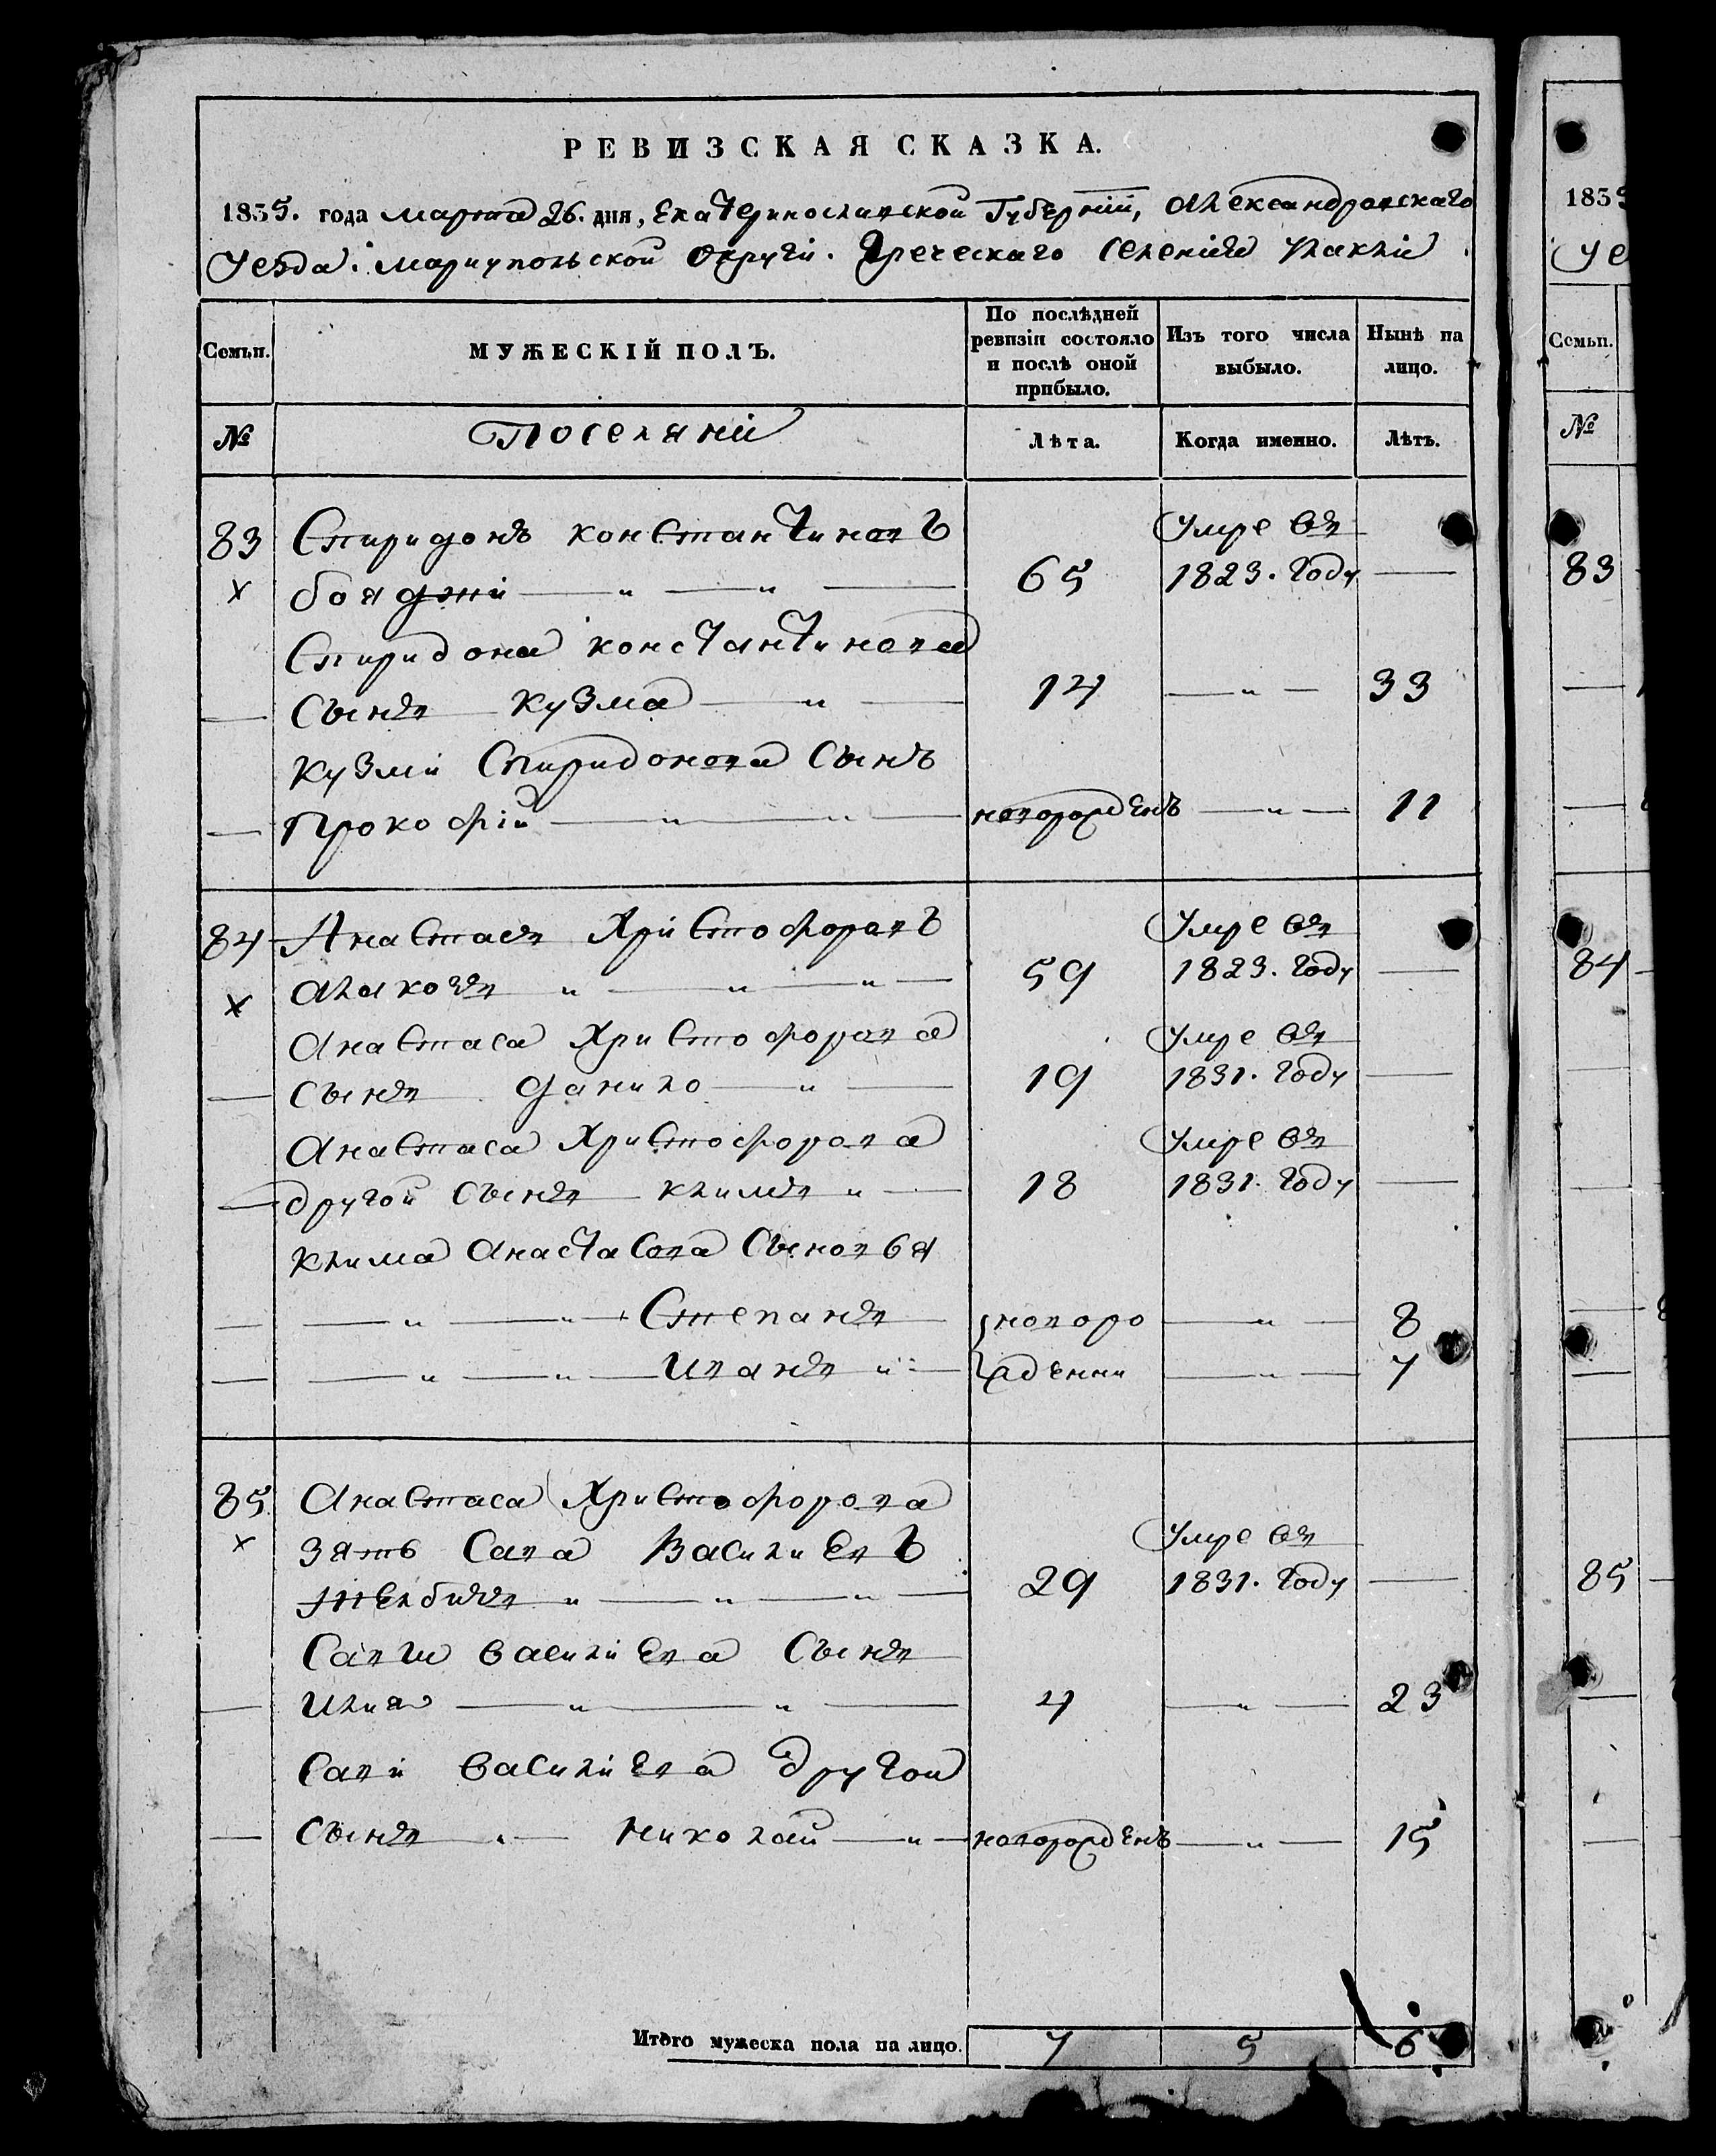 РЕВИЗСКАЯ СКАЗКА.
1835. года марта 26. дня, Екатеринославской Губерніи, Александровскаго
уезда. мариупольской округи. Греческаго селенія
Семьи.
МУЖЕСКІЙ ПОЛЪ.
По послѣдней ревизіи состояло и послѣ оной прибыло.
Изъ того числа выбыло.
Нынѣ на лицо.
№
Поселяни
Лѣта.
Когда именно.
Лѣтъ.
83 Спиридонъ константиновъ Умре въ
х бояджи — " — " — 65 1823. году —
Спиридона константинова
— сынъ кузма — " — 14 — " — 33
кузми Спиридонова сынъ
— Прокофій — " — " — новорожденъ — " — 11
84 Анастасъ Христофоровъ Умре въ
х " — " — " — 59 1823. году —
Анастаса Христофорова Умре въ
— сынъ данило — " — 19 1831. году —
Анастаса Христофорова Умре въ
— другой сынъ климъ " — 18 1831. году —
клима Анастасова сыновья
— — " — " — Степанъ новоро — " — 8
— — " — " — Иванъ " — жденни — " — 7
85 Анастаса Христофорова
х зять Сава Василиевъ Умре въ
" — " — " — 29 1831. году —
Савы василиева сынъ
— Илия — " — " — 4 — " — 23
Сави василиева другой
— сынъ " — николай — " — новорожденъ — " — 15
Итого мужеска пола на лицо. 7 5 6
1835
уе
Семьи.
№
83
84
85